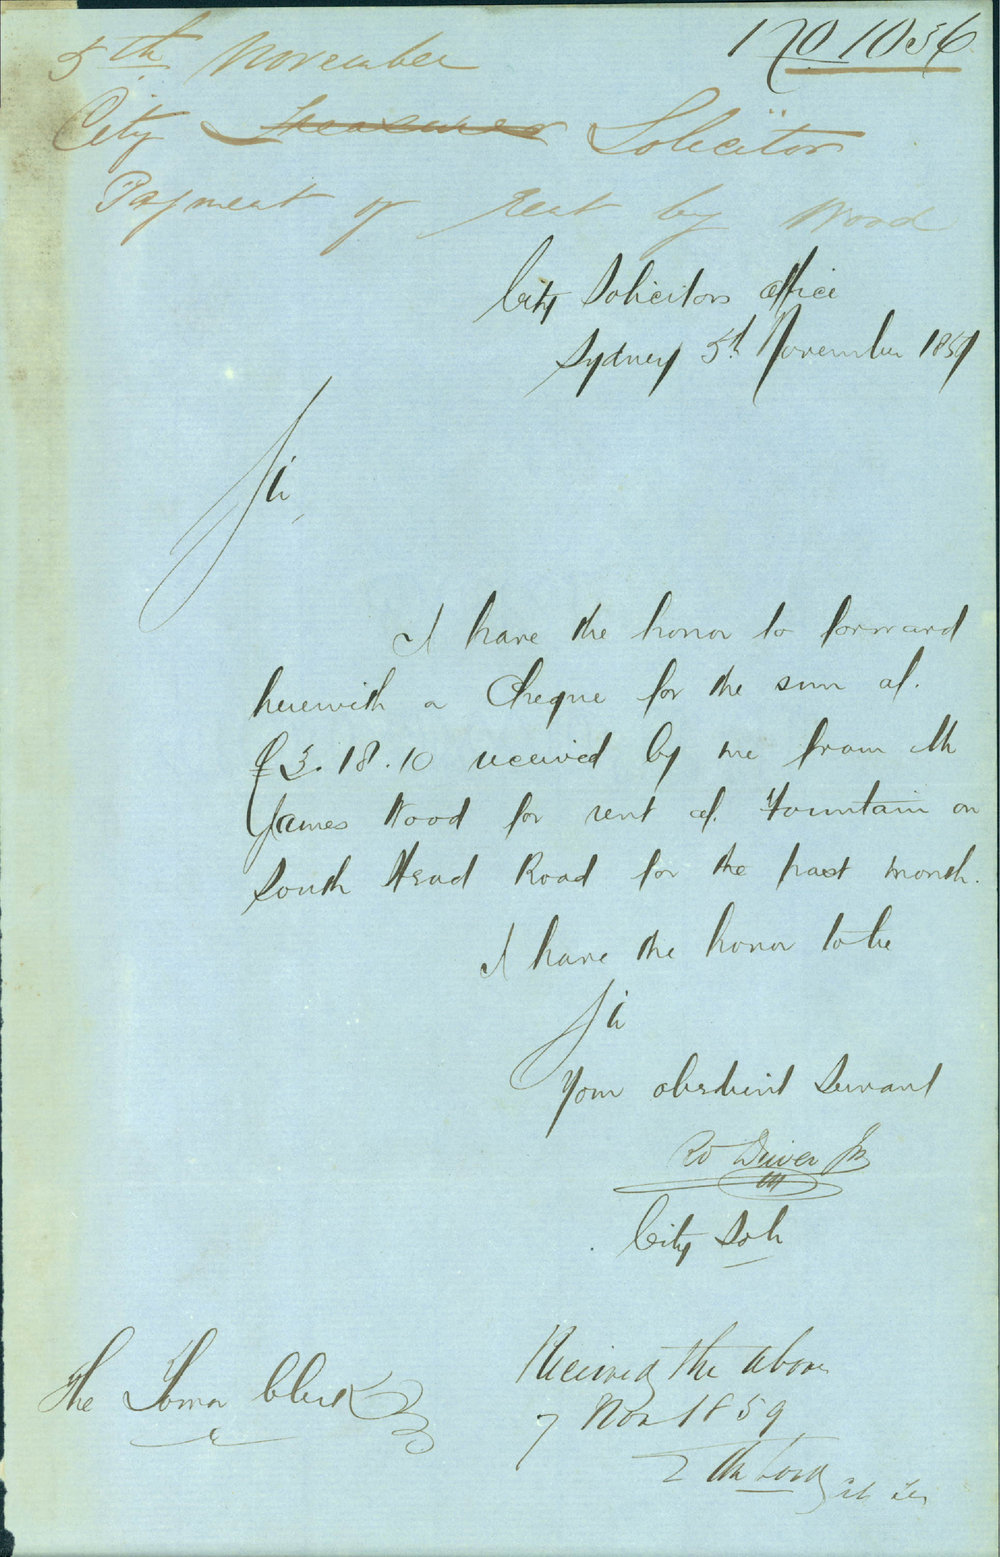 No 1036
5th November
City Treasurer Solicitor
Payment of Rent by Wood
City Solicitors Office
Sydney 5th November 1859
Sir,
I have the honor to forward
herewith a Cheque for the sum of
£3.18.10 received by me from Mr
James Wood for rent of Fountain on
South Head Road for the past month.
I have the honor to be
Sir
Your obedient Servant
Rd Driver Jr
City Solr
The Town Clerk
Received the above
7 Nov 1859